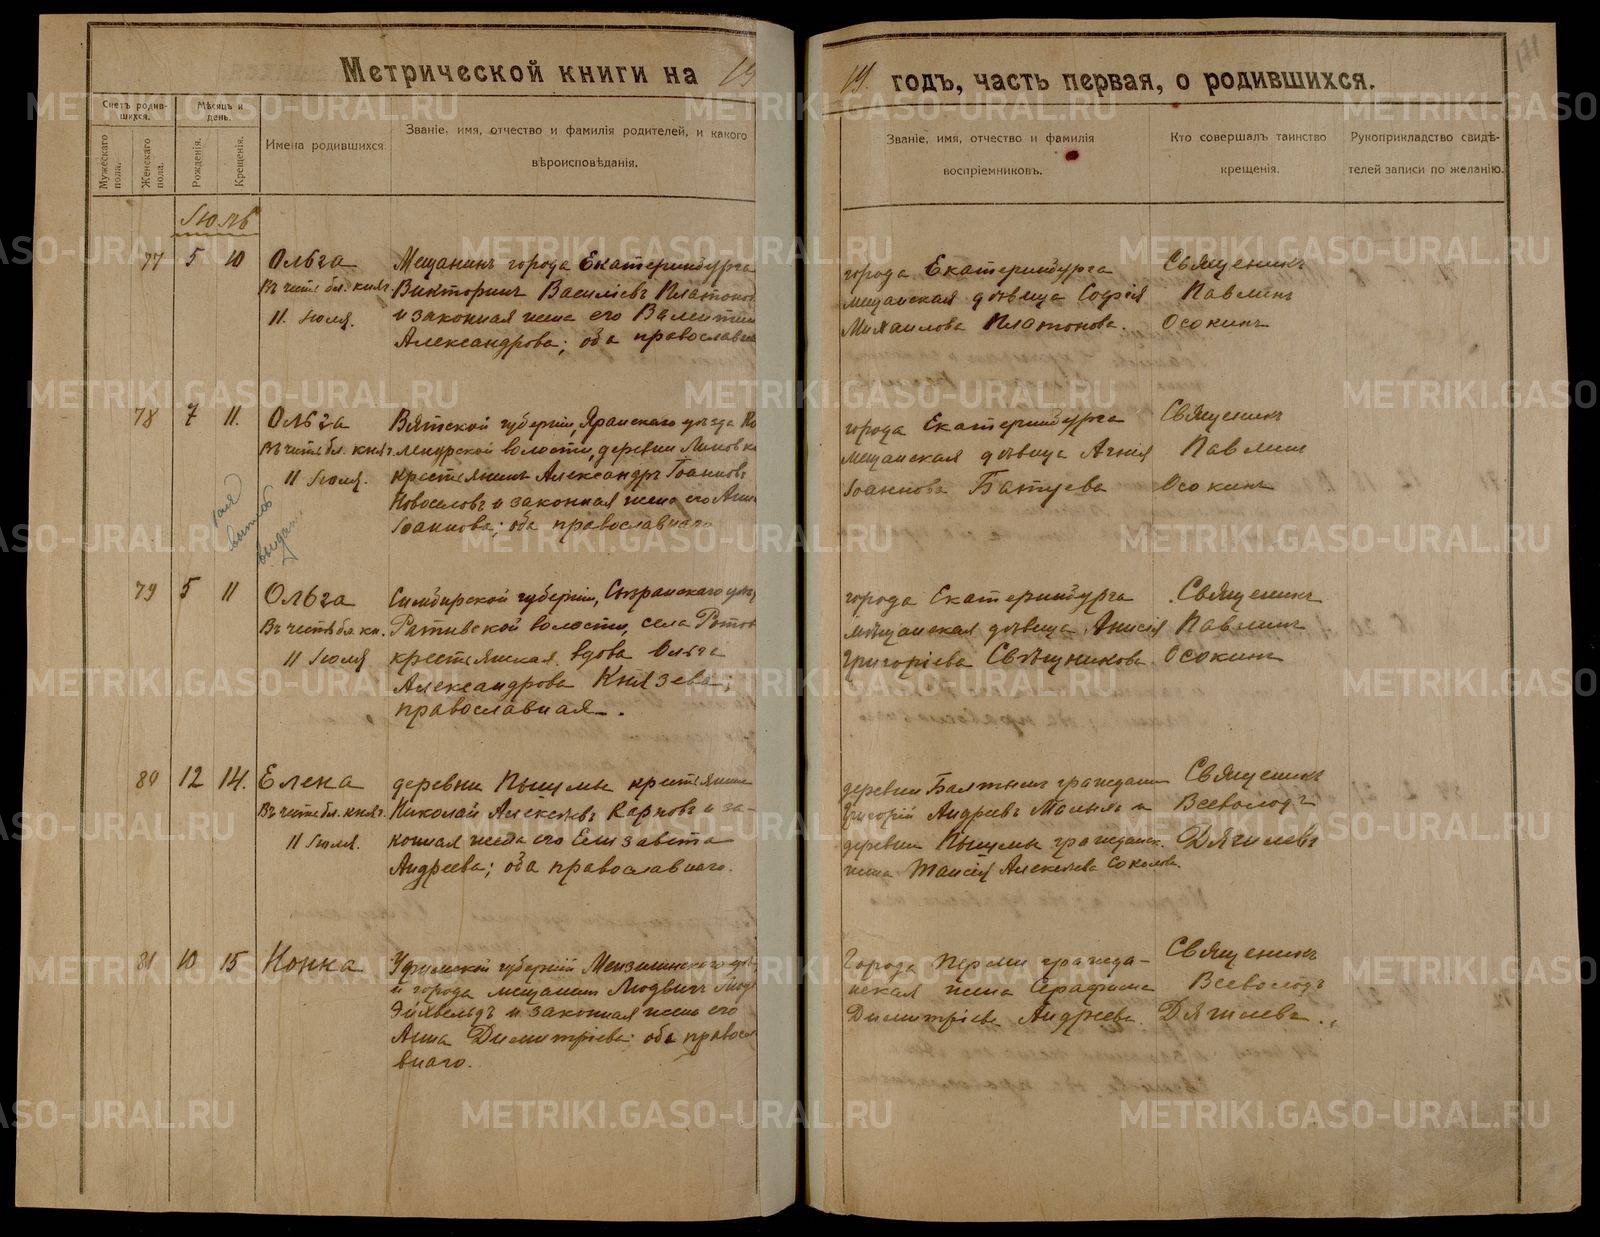 Метрической книги на 19
19. годъ, часть первая, о родившихся.
Счетъ родив-
шихся.
Мѣсяцъ и
день.
Мужескаго
пола.
Женскаго
пола.
Рожденія.
Крещенія.
Имена родившихся.
Званіе, имя, отчество и фамилія родителей, и какого
вѣроисповѣданія.
Званіе, имя, отчество и фамилія
воспріемниковъ.
Кто совершалъ таинство
крещенія.
Рукоприкладство свидѣ-
телей записи по желанію.
Іюль
77 5 10
Ольга
11. Іюля.
Мещанинъ города Екатеринбурга
Викторинъ Василіевъ Платонов
и законная жена его Валентин
Александрова; оба православна
города Екатеринбурга
мещанская дѣвица Софія
Михаилова Платонова.
Священникъ
Павлинъ
Осокинъ
78 7 11.
Ольга
11 Іюля.
Вятской губерніи, Яранскаго уѣзда
волости, деревни
крестьянинъ Александръ Іоанновъ
Новоселовъ и законная жена его Анна
Іоаннова; оба православнаго
города Екатеринбурга
мещанская дѣвица Агнія
Іоаннова Батуева
Священникъ
Павлин
Осокинъ
79 5 11
Ольга
11 Іюля
Симбирской губерніи, Сызранскаго уѣз
волости, села
крестьянская вдова Ольга
Александрова Князева;
православная.
города Екатеринбурга
мѣщанская дѣвица Анисія
Григоріева Свѣшникова
Священникъ
Павлинъ
Осокинъ
80 12 14.
Елена
11 Іюля.
деревни Пышмы крестьянин
Николай Алексѣевъ Карповъ и за-
конная жена его Елизавета
Андреева; оба православнаго.
деревни граждан
Григорій Андреевъ и
деревни Пышмы гражданск.
жена Таисія Алексѣева Соколова
Священникъ
Всеволодъ
Дягилевъ
81 10 15
Нонна
Уфимской губерніи Мензелинскаго уѣз
и города мещанин Людвигъ Люд
и законная жена его
Анна Димитріева; оба правосл
внаго.
Города Перми гражда-
нская жена Серафима
Димитріева Андреева.
Священникъ
Всеволодъ
Дягилевъ.
METRIKI.GASO-URAL.RU